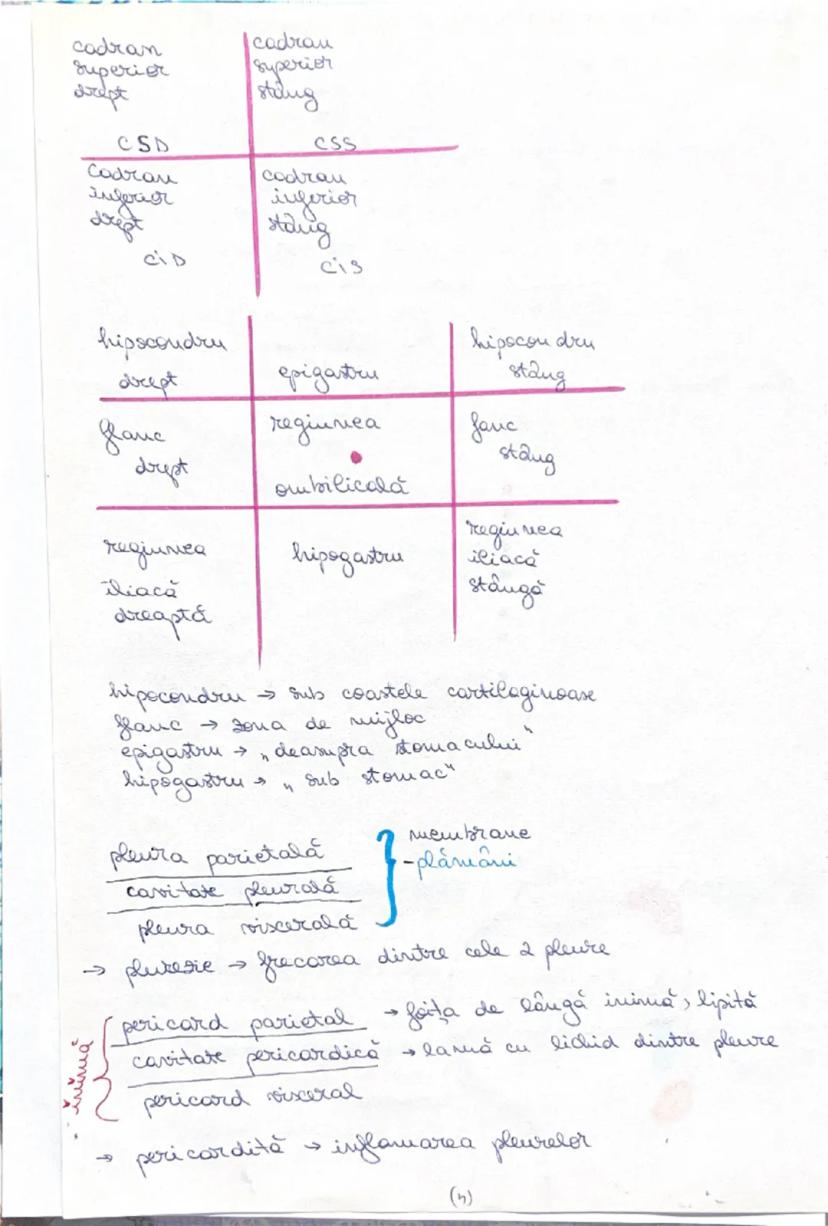 cadran
superior
drept
CSD
cadran
superior
stâng
CSS
cadran
inferior
drept
CiD
cadran
inferior
stâng
CiS
hipocondru
drept
epigastru
hipocondru
stâng
flanc
drept
regiunea
ombilicală
flanc
stâng
regiunea
iliacă
dreaptă
hipogastru
regiunea
iliacă
stângă
hipocondru → sub coastele cartilaginoase
flanc → zona de mijloc
epigastru → „deasupra stomacului"
hipogastru → „sub stomac"
pleura parietală
cavitate pleurală
pleura viscerală
membrane
-plămâni
→ plurezie → frecarea dintre cele 2 pleure
inimă
pericard parietal → foița de lângă inimă, lipită
cavitate pericardică → lamă cu lichid dintre pleure
pericard visceral
→ pericardită → inflamarea pleurelor